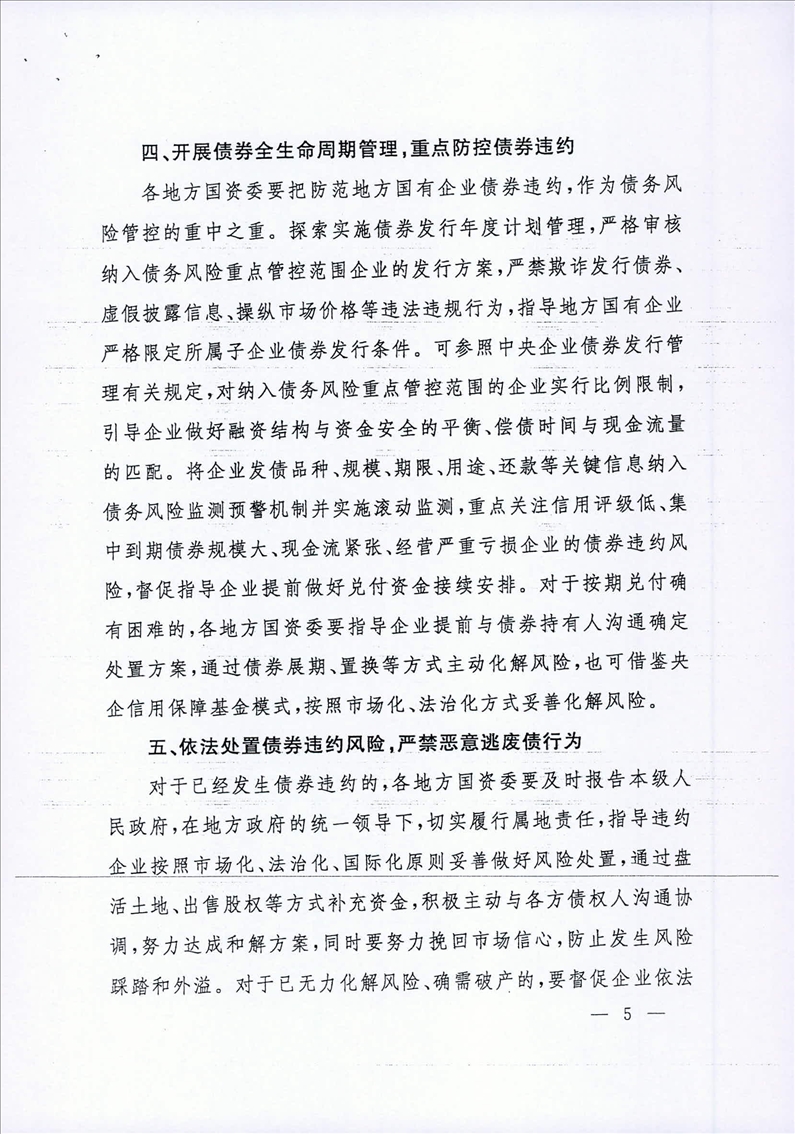 四、开展债券全生命周期管理,重点防控债券违约
各地方国资委要把防范地方国有企业债券违约,作为债务风
险管控的重中之重。探索实施债券发行年度计划管理,严格审核
纳入债务风险重点管控范围企业的发行方案,严禁欺诈发行债券、
虚假披露信息、操纵市场价格等违法违规行为,指导地方国有企业
严格限定所属子企业债券发行条件。可参照中央企业债券发行管
理有关规定,对纳入债务风险重点管控范围的企业实行比例限制,
引导企业做好融资结构与资金安全的平衡、偿债时间与现金流量
的匹配。将企业发债品种、规模、期限、用途、还款等关键信息纳入
债务风险监测预警机制并实施滚动监测,重点关注信用评级低、集
中到期债券规模大、现金流紧张、经营严重亏损企业的债券违约风
险,督促指导企业提前做好兑付资金接续安排。对于按期兑付确
有困难的,各地方国资委要指导企业提前与债券持有人沟通确定
处置方案,通过债券展期、置换等方式主动化解风险,也可借鉴央
企信用保障基金模式,按照市场化、法治化方式妥善化解风险。
五、依法处置债券违约风险,严禁恶意逃废债行为
对于已经发生债券违约的,各地方国资委要及时报告本级人
民政府,在地方政府的统一领导下,切实履行属地责任,指导违约
企业按照市场化、法治化、国际化原则妥善做好风险处置,通过盘
活土地、出售股权等方式补充资金,积极主动与各方债权人沟通协
调,努力达成和解方案,同时要努力挽回市场信心,防止发生风险
踩踏和外溢。对于已无力化解风险、确需破产的,要督促企业依法
— 5 —